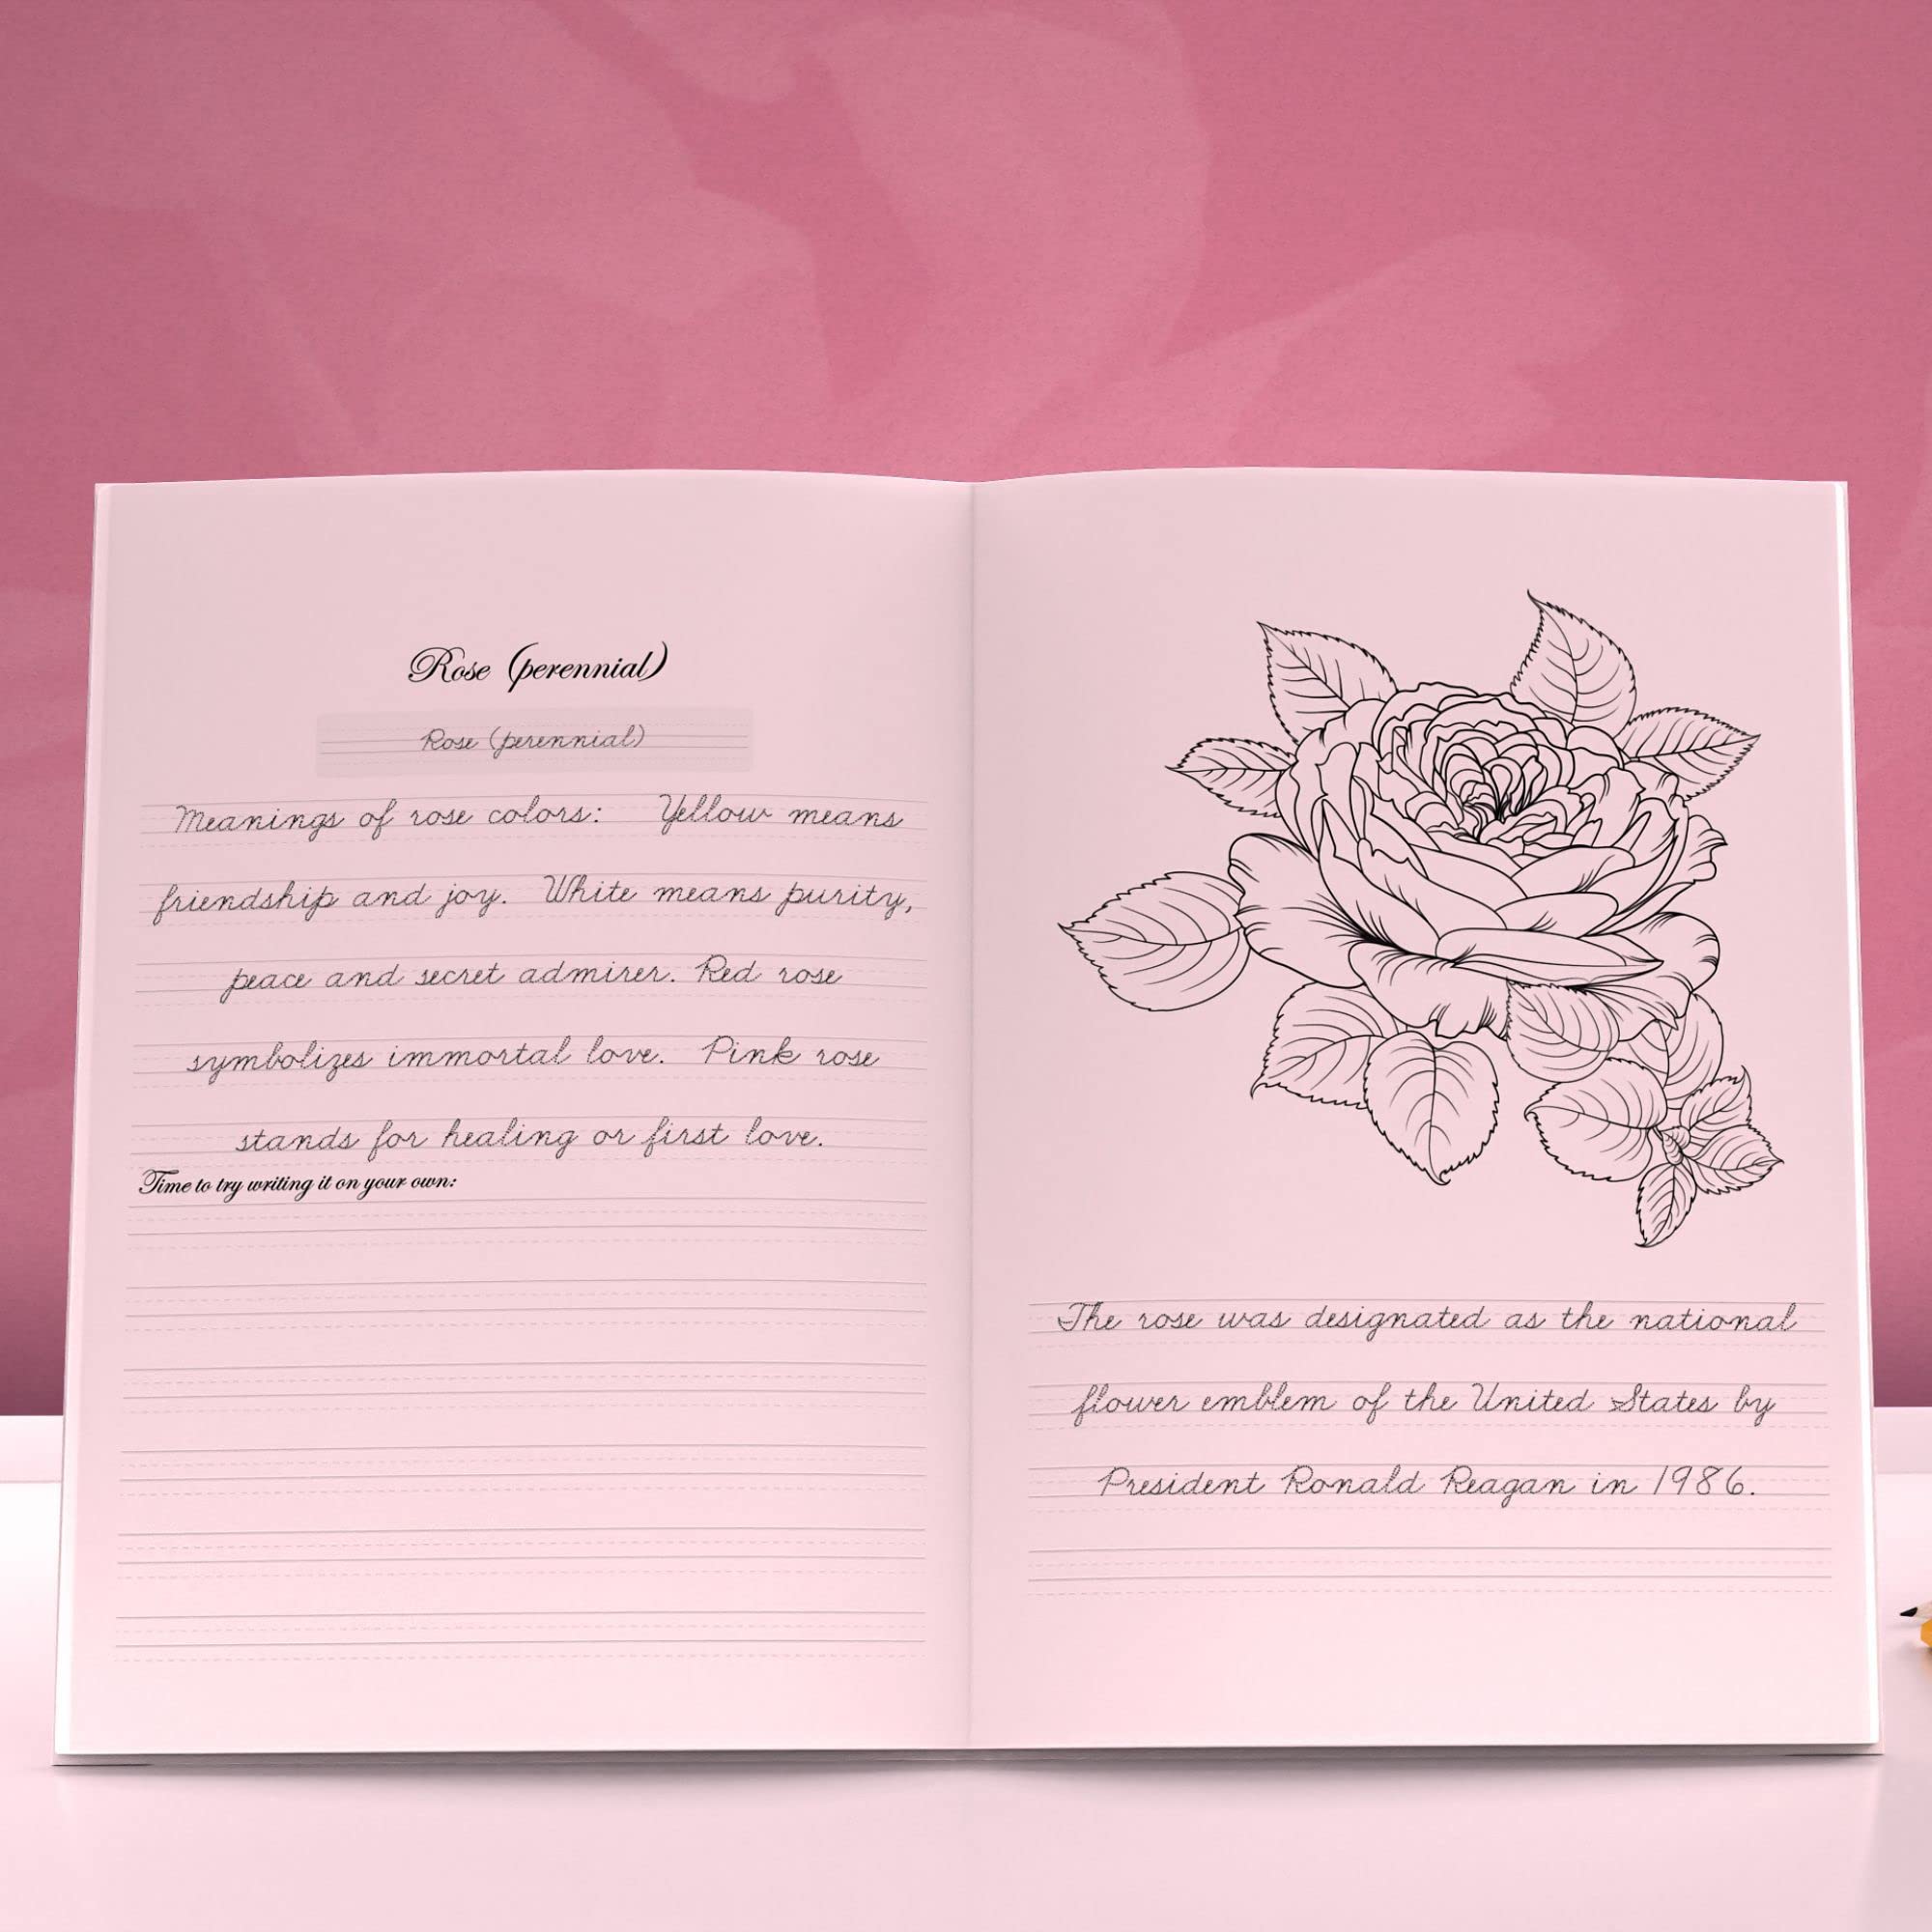 Rose (perennial)
Rose (perennial)
Meanings of rose colors: Yellow means
friendship and joy. White means purity,
peace and secret admirer. Red rose
symbolizes immortal love. Pink rose
stands for healing or first love.
Time to try writing it on your own:
The rose was designated as the national
flower emblem of the United States by
President Ronald Reagan in 1986.